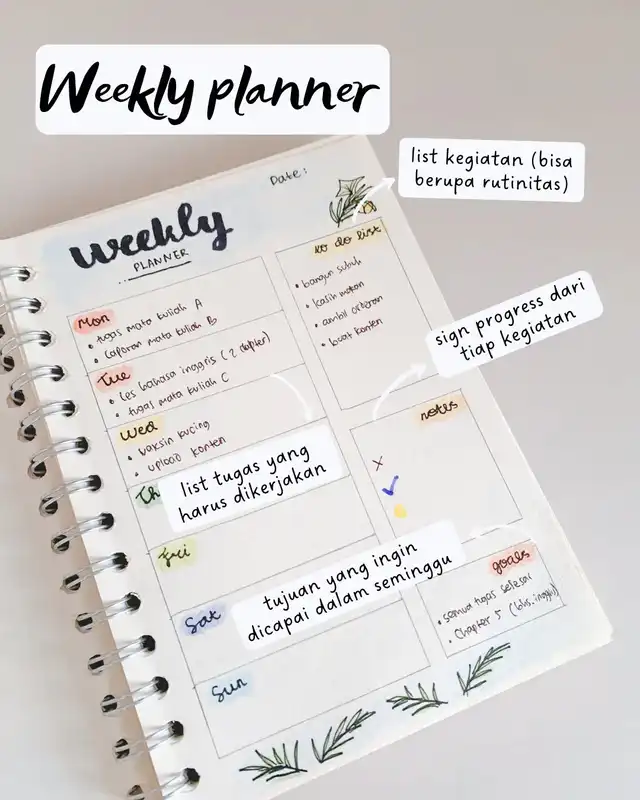 Weekly planner
list kegiatan (bisa
berupa rutinitas)
Date:
weekly
PLANNER
to do list
• bangun subuh
• kasih makan
• ambil orderan
• buat konten
Mon
• tugas mata kuliah A
• laporan mata kuliah B
Tue
• Les bahasa inggris (2 chapter)
• tugas mata kuliah C
Wed
• vaksin kucing
• upload konten
sign progress dari
tiap kegiatan
notes
list tugas yang
harus dikerjakan
Th
Fri
tujuan yang ingin
dicapai dalam seminggu
Sat
Sun
goals
• semua tugas selesai
• Chapter 5 (bhs. inggris)